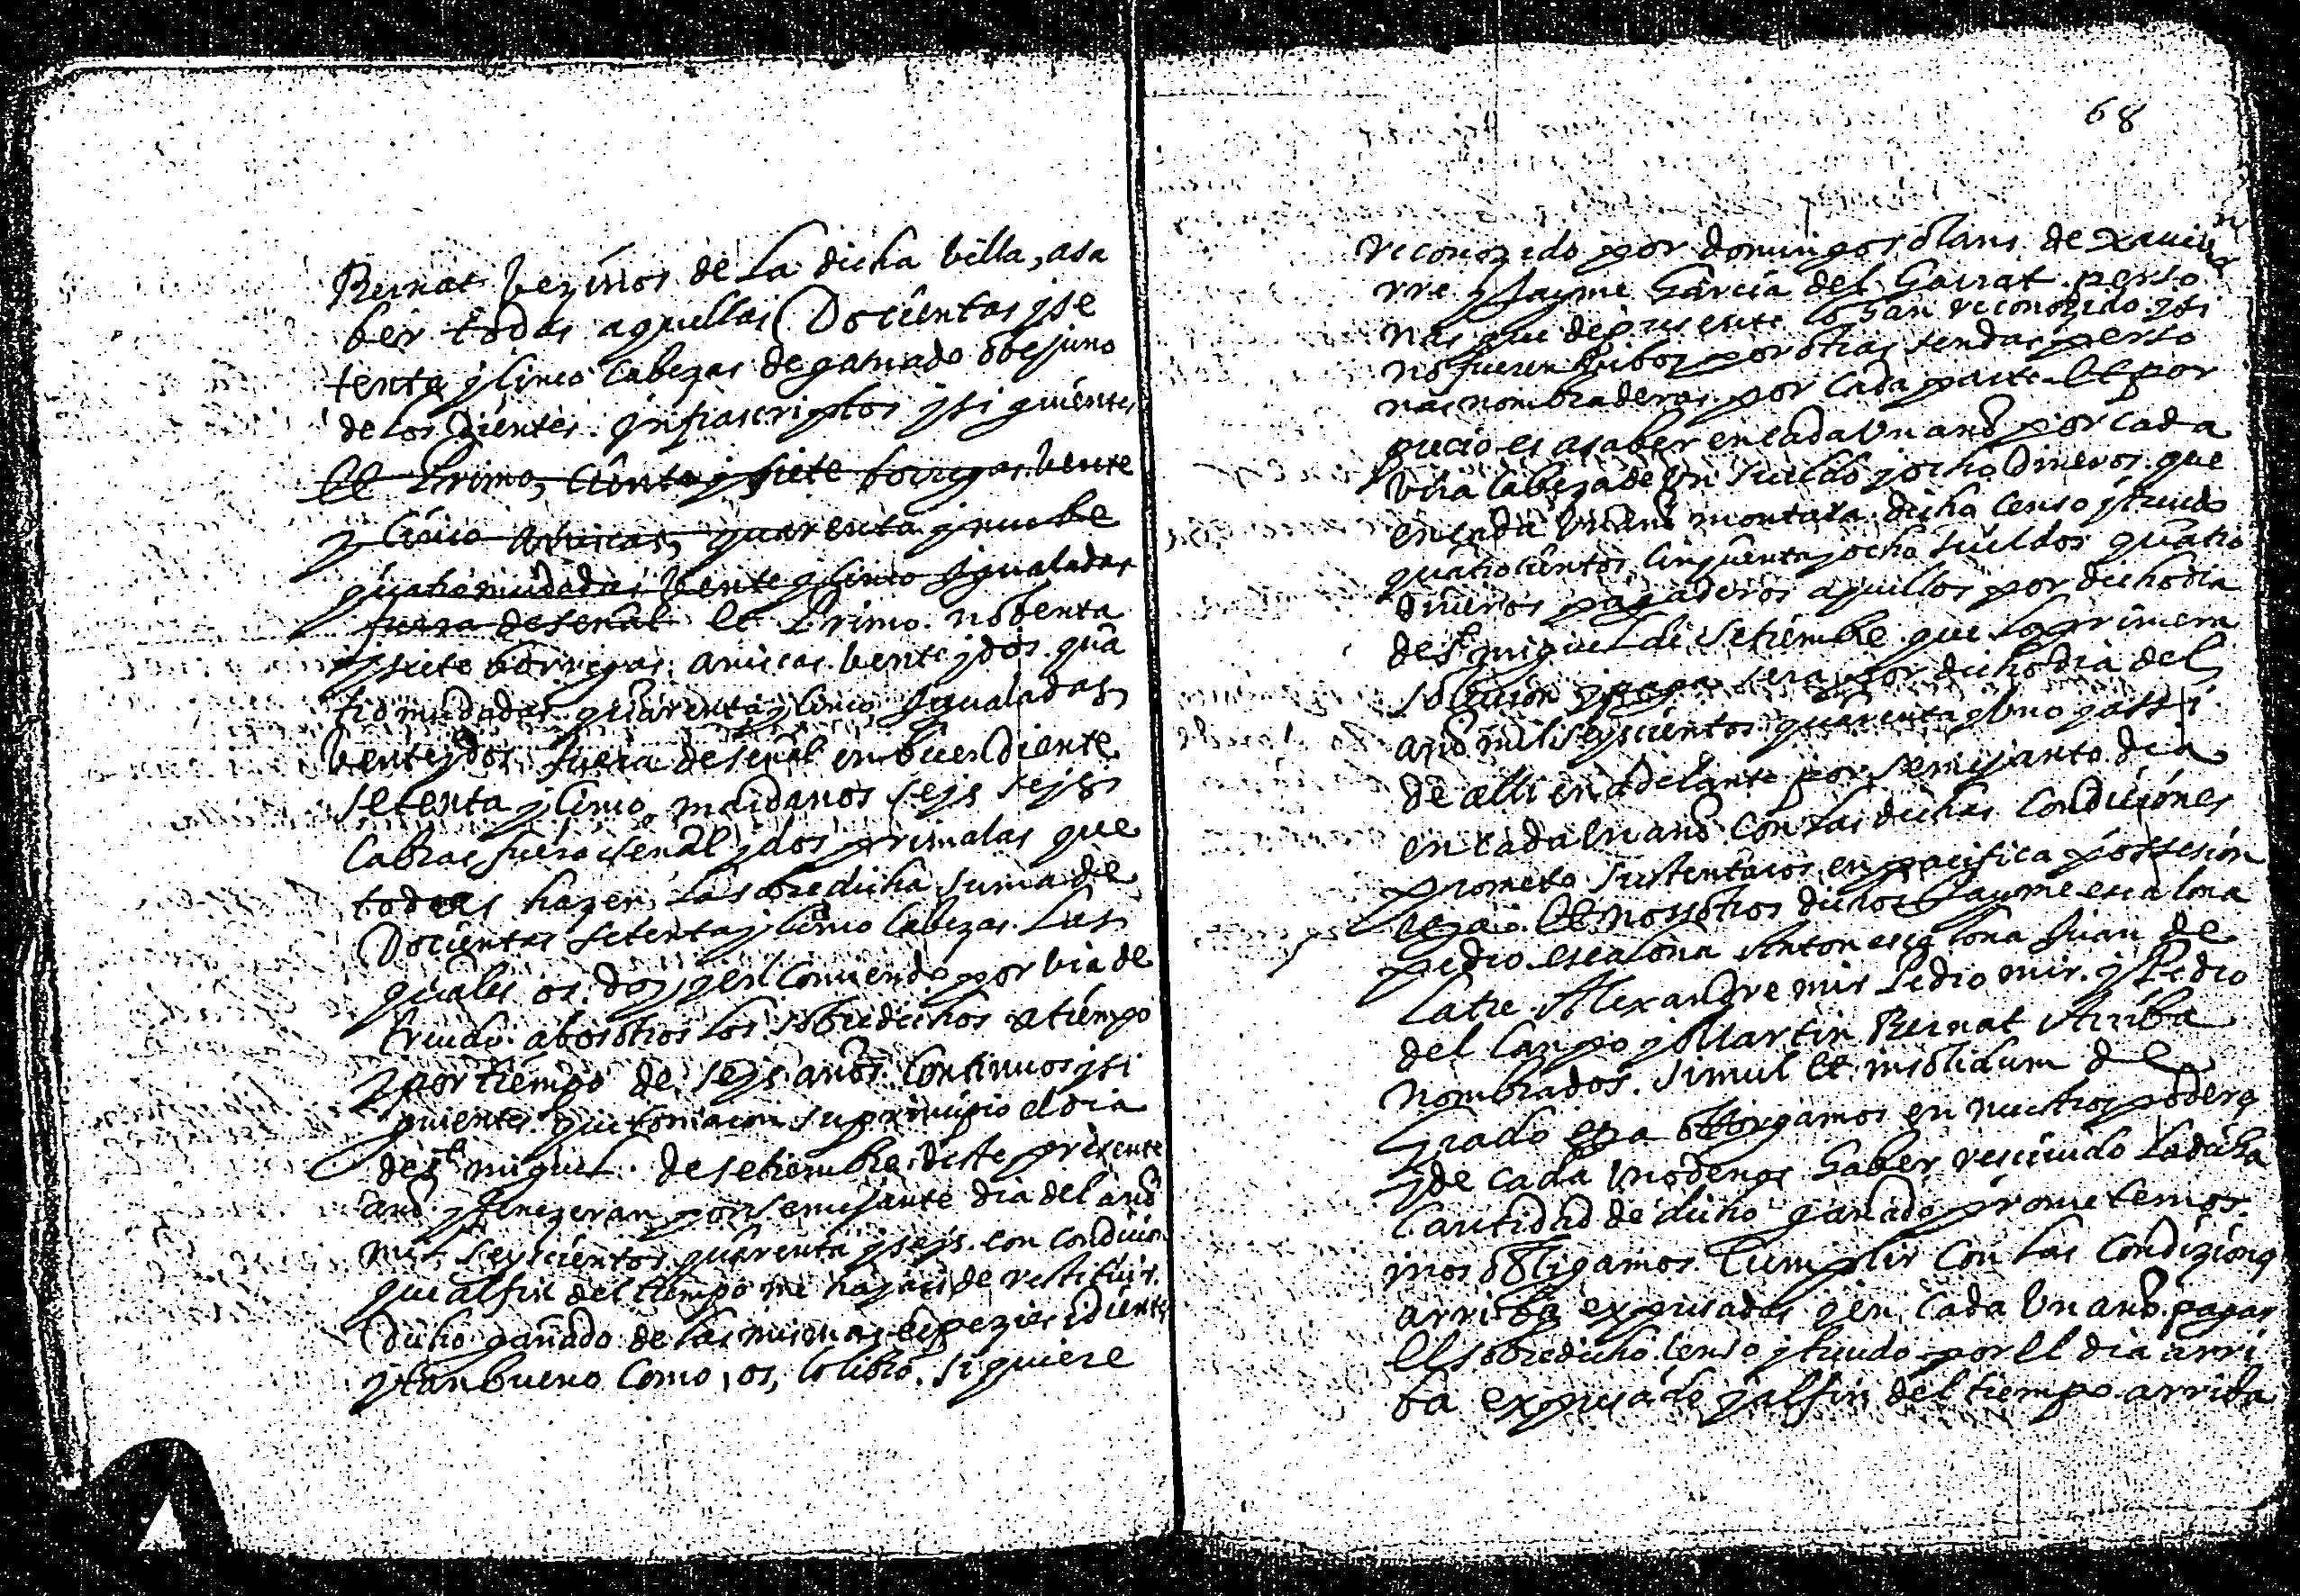 Bernat vezinos de la dicha villa, asa
ber todas aquellas Docientas yse
tenta y cinco Cabezas de ganado obejuno
de los dientes infrascriptos ysiguientes
et Primo, ciento y siete borregas vente
y cinco anicas, quarenta y nuebe
quatromudadas vente y cinco igualadas
fuera de señal et Primo nobenta
ysiete borregas anicas vente ydos qua
tromudadas quarenta y cinco igualadas
venteydos fuera deseñal en buen diente
setenta ycinco mardanos seys seys
Cabras fuera señal ydos primalas que
todas hazen la sobredicha suma de
Docientas setenta y cinco Cabezas las
quales os doy y en comiendo por via de
treudo abosotros los sobredichos a tiempo
y por tiempo de seys años Continuos ysi
guientes que comiençan su principio el dia
de St miguel de setiembre deste presente
año y fenezeran por semejante dia del año
mil seyscientos quarenta yseys con condicion
que alfin del tiempo me hayais de restituir
dicho ganado de las mismas especies idientes
ytanbueno como os lo libro si quiere
68
reconozido por domingo solans de xavie
rre y Jayme Garcia del Garrat perso
nas que depresente lo han reconozido ysi
no fueren bibos por otras sendas perso
nas nombraderas por cada parte et por
precio es asaber encada un año por cada
una Cabeza de un sueldo y ocho dineros que
encada un año montara dicho censo ytreudo
quatrocientos cinquenta yocho sueldos quatro
dineros pagaderos aquellos por dicho dia
de St miguel de setiembre que la primera
solucion y paga sera por dicho dia del
año mil seyscientos quarenta yuno y assi
de alli en adelante por semejante dia
en cada un año con las dichas Condiciones
prometo sustentaros en pacifica possesion
et nosotros dichos Jayme escalona
pedro escalona Anton escalona Juan de
Latre Alexandre mir Pedro mir y Pedro
del Campo y Martin Bernat Arriba
nombrados simul et insolidum de
Grado otorgamos en nuestros poderes
y de cada uno denos haber rescivido ladicha
Cantidad de dicho ganado prometemos
inos obligamos Cumplir con las condiziones
arriba expresadas yen cada un año pagar
el sobredicho censo ytreudo por el dia arri
ba expresado yalfin del tiempo arriba